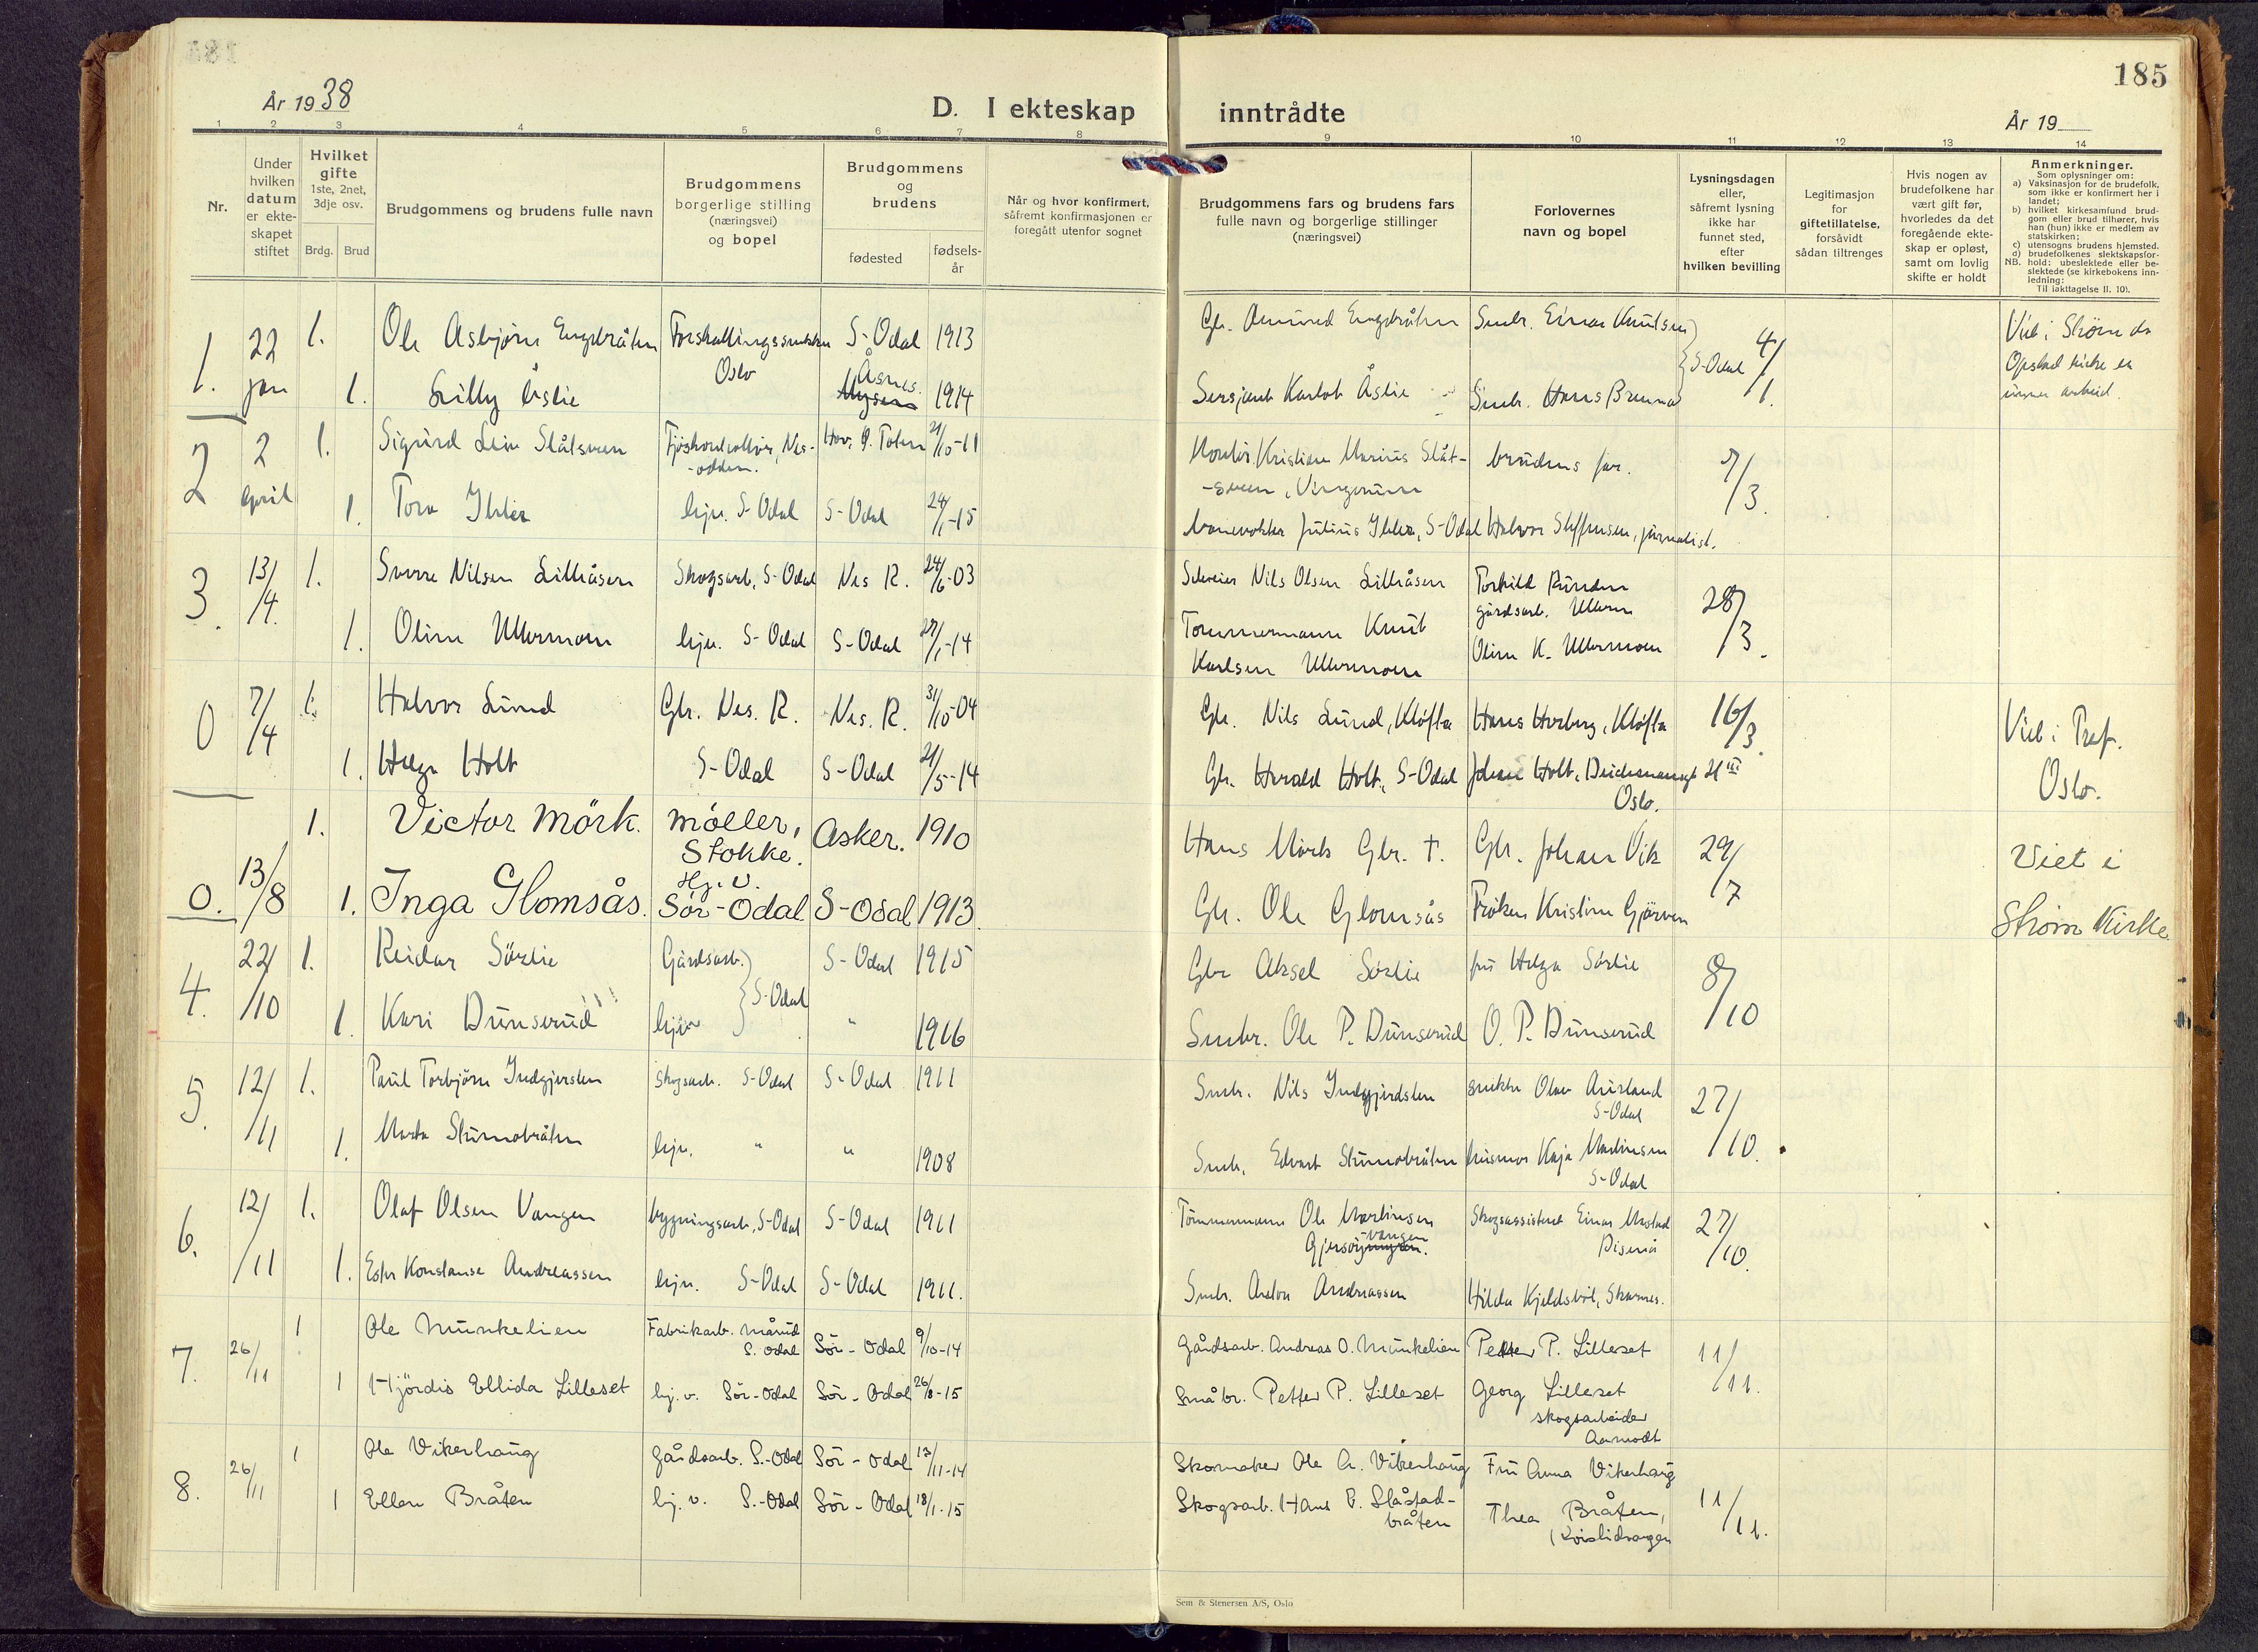 185
År 1938
D. I ekteskap inntrådte
År 19
1 2 3 4 5 6 7 8 9 10 11 12 13 14
Nr.
Under
hvilken
datum
er ekte-
skapet
stiftet
Hvilket
gifte
1ste, 2net,
3dje osv.
Brdg. Brud
Brudgommens og brudens fulle navn
Brudgommens
borgerlige stilling
(næringsvei)
og bopel
Brudgommens
og
brudens
fødested
fødsels-
år
Når og hvor konfirmert,
såfremt konfirmasjonen er
foregått utenfor sognet
Brudgommens fars og brudens fars
fulle navn og borgerlige stillinger
(næringsvei)
Forlovernes
navn og bopel
Lysningsdagen
eller,
såfremt lysning
ikke har
funnet sted,
efter
hvilken bevilling
Legitimasjon
for
giftetillatelse,
forsåvidt
sådan tiltrenges
Hvis nogen av
brudefolkene har
vært gift før,
hvorledes da det
foregående ekte-
skap er opløst,
samt om lovlig
skifte er holdt
Anmerkninger.
Som oplysninger om:
a) Vaksinasjon for de brudefolk,
som ikke er konfirmert her i
landet;
b) hvilket kirkesamfund brud-
gom eller brud tilhører, hvis
han (hun) ikke er medlem av
statskirken;
c) utensogns brudens hjemsted.
d) brudefolkenes slektskapsfor-
NB. hold: ubeslektede eller be-
slektede (se kirkebokens inn-
ledning:
Til iakttagelse II. 10).
1. 22 jan 1. Ole Asbjørn Engebråten Forskallingssnekker Oslo S-Odal 1913 Gbr. Amund Engebråten Smbr. Einar Knutsen S-Odal 4/1. Viet i Strøm da
Opstad kirke er
under arbeid.
1. Lilly Åslie Åsnes 1914 Sersjant Karlot Åslie Smbr. Hans Brenna
2 2 april 1. Sigurd Leiv Slåtsveen Fjøskontrollør, Nes-
-odden. Hov, Ø. Toten 21/10-11 Kontor. Kristian Marius Slåt-
-sveen, Vingrom brudens far. 7/3.
1. Tora Ihler hju. S-Odal S-Odal 24/1-15 banevokter Julius Ihler, S-Odal Halvor Steffensen, journalist.
3. 13/4. 1. Sverre Nilsen Lillåsen Skogsarb. S-Odal Nes R. 24/6-03 Selveier Nils Olsen Lillåsen Torhild Runden
gårdsarb. Ullern 28/3.
1. Oline Ullermoen hju. S-Odal S-Odal 27/1-14 Tømmermann Knut
Karlsen Ullermoen Oline K. Ullermoen
0 7/4 1. Halvor Lund Gbr. Nes. R. Nes. R. 31/10-04 Gbr. Nils Lund, Kløfta Hans Hvrberg, Kløfta 16/3. Viet i Prestg.
Oslo.
1. Helga Holt S-Odal S-Odal 21/5-14 Gbr. Harald Holt, S-Odal Johan Holt, Deichmansgt 21 III
Oslo.
0. 13/8 1. Victor Mörk. møller,
Stokke. Asker. 1910 Hans Mørk Gbr. †. Gbr. Johan Vik 29/7 Viet i
Strøm Kirke
1. Inga Glomsås. Hj. v.
Sør-Odal S-Odal 1913. Gbr. Ole Glomsås Frøken Kristine Gjørven
4. 22/10 1. Reidar Sörlie Gårdsarb. S-Odal S-Odal 1915 Gbr Aksel Sørlie fru Helga Sørlie 8/10
1. Kari Dunserud hju " 1916 Smbr. Ole P. Dunserud O. P. Dunserud
5. 12/11 1. Paul Torbjørn Indgjerdslen Skogsarb. S-Odal S-Odal 1911 Smbr. Nils Indgjerdslen snekker Olav Aurland
S-Odal 27/10.
1. Marta Stumobråten hju. " " 1908 Smbr. Edvart Stumobråten husmor Kaja Martinsen
S-Odal
6. 12/11 1. Olaf Olsen Vangen bygningsarb. S-Odal S-Odal 1911 Tømmermann Ole Martinsen
Gjersøyvangen. Skogsassistent Einar Mostad
Disenå 27/10.
1. Ester Konstanse Andreassen hju. S-Odal S-Odal 1911. Smbr. Anton Andreassen Hilda Kjeldsbøl, Skarnes.
7. 26/11 1 Ole Munkelien Fabrikarb. Mårud
S. Odal Sör-Odal 9/10-14 Gårdsarb. Andreas O. Munkelien Petter P. Lilleset 11/11.
1 Hjördis Ellida Lilleset hj. v. Sör-Odal Sör-Odal 26/8-15 Småbr. Petter P. Lilleset Georg Lilleset
skogsarbeider
Aamodt
8. 26/11 1 Ole Vikerhaug Gårdsarb. S.-Odal Sör-Odal 13/11-14 Skomaker Ole A. Vikerhaug Fru Anna Vikerhaug 11/11.
1 Ellen Bråten hj. v. S.-Odal Sör-Odal 18/1-15 Skogsarb. Hans E. Slåstad-
bråten Thea Bråten,
Kvislidvangen
Sem & Stenersen A/S, Oslo